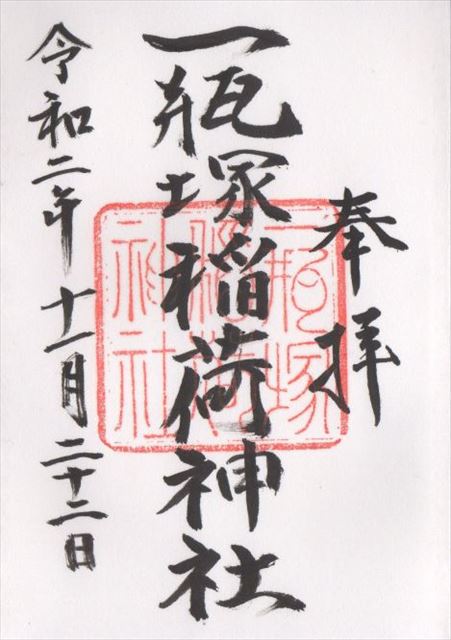 奉拝
一瓶塚稲荷神社
一瓶塚
稲荷
神社
令和二年十一月二十二日